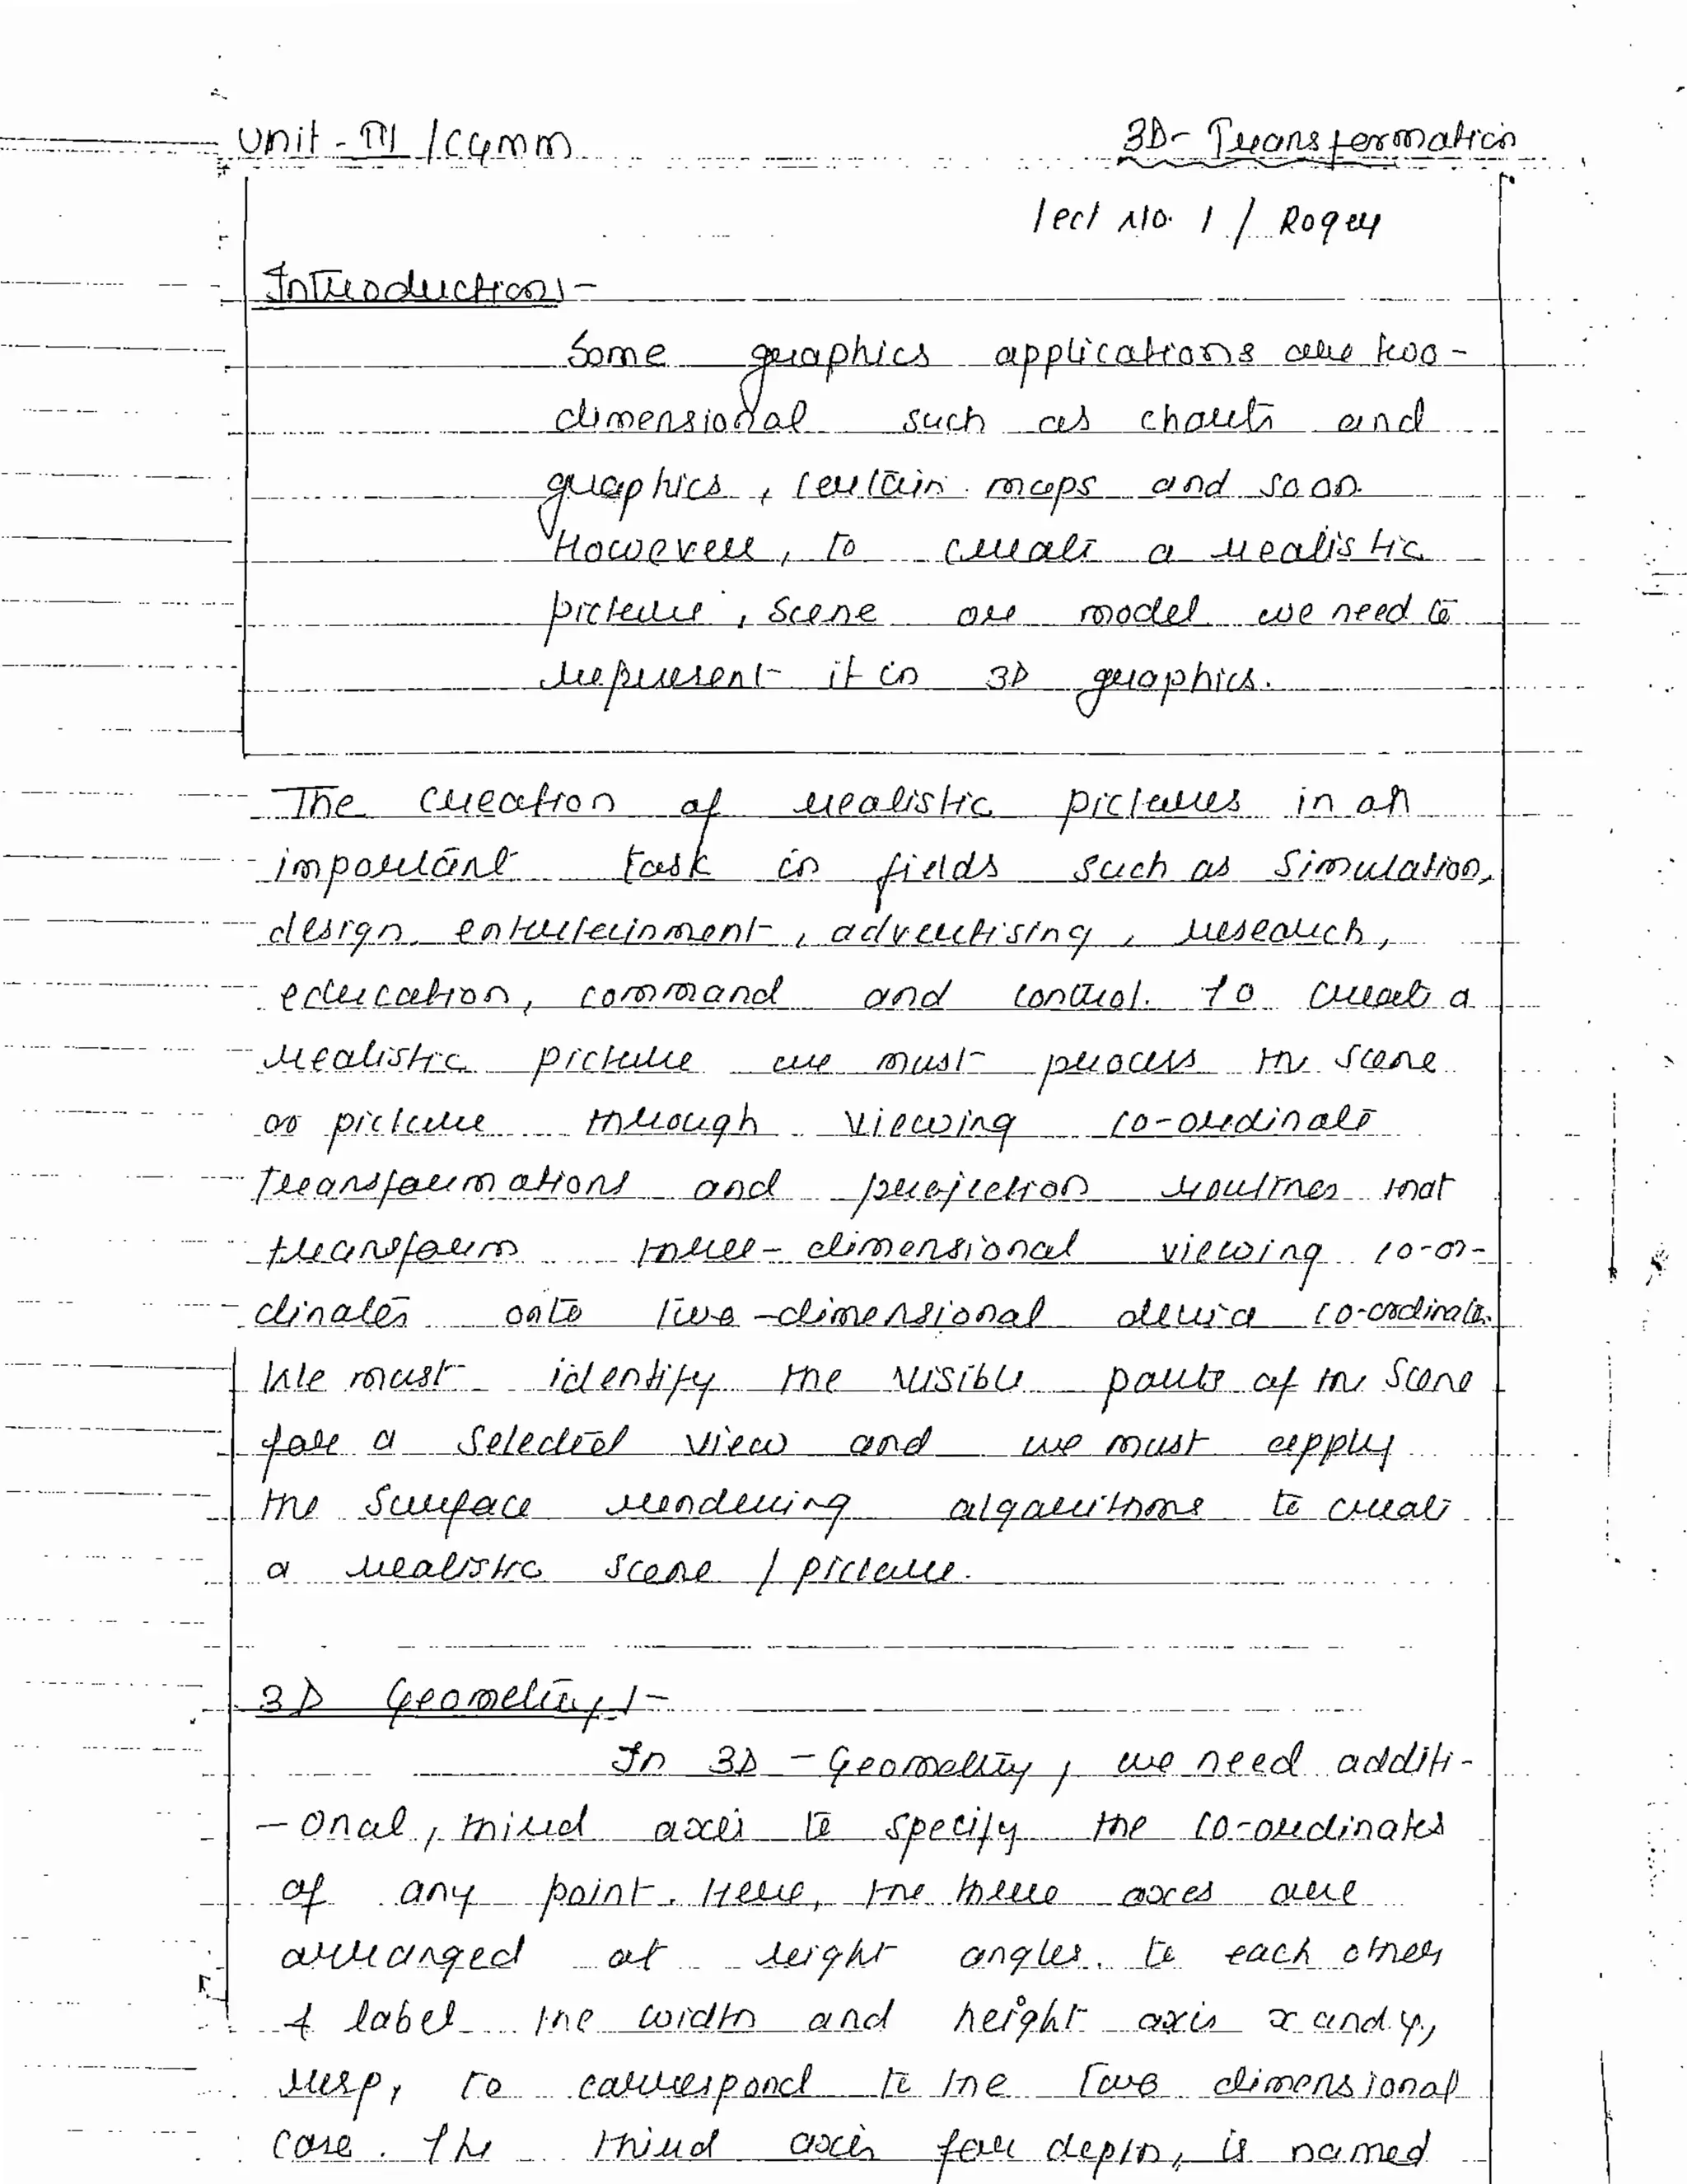 Unit - III / CGMM
3D- Transformation
lect No. 1 / Roger
Introduction:-
Some graphics applications are two-
dimensional such as charts and
graphics, certain maps and soon.
However, to create a realistic
picture, Scene or model we need to
represent it in 3D graphics.
The creation of realistic pictures in an
important task in fields such as Simulation,
design, entertainment, advertising, research,
education, command and control. To create a
realistic picture we must process the scene
or picture through viewing co-ordinate
Transformations and projection routines that
transform three-dimensional viewing co-or-
dinates onto two-dimensional device co-ordinates.
We must identify the visible parts of the Scene
for a Selected view and we must apply
the Surface rendering algorithms to create
a realistic Scene / picture.
3D Geometry:-
In 3D - Geometry, we need additi-
- onal, third axis to specify the co-ordinates
of any point. Here, the three axes are
arranged at right angles. to each other
& label the width and height axis x and y,
resp, to correspond to the two dimensional
case. The third axis for depth, is named